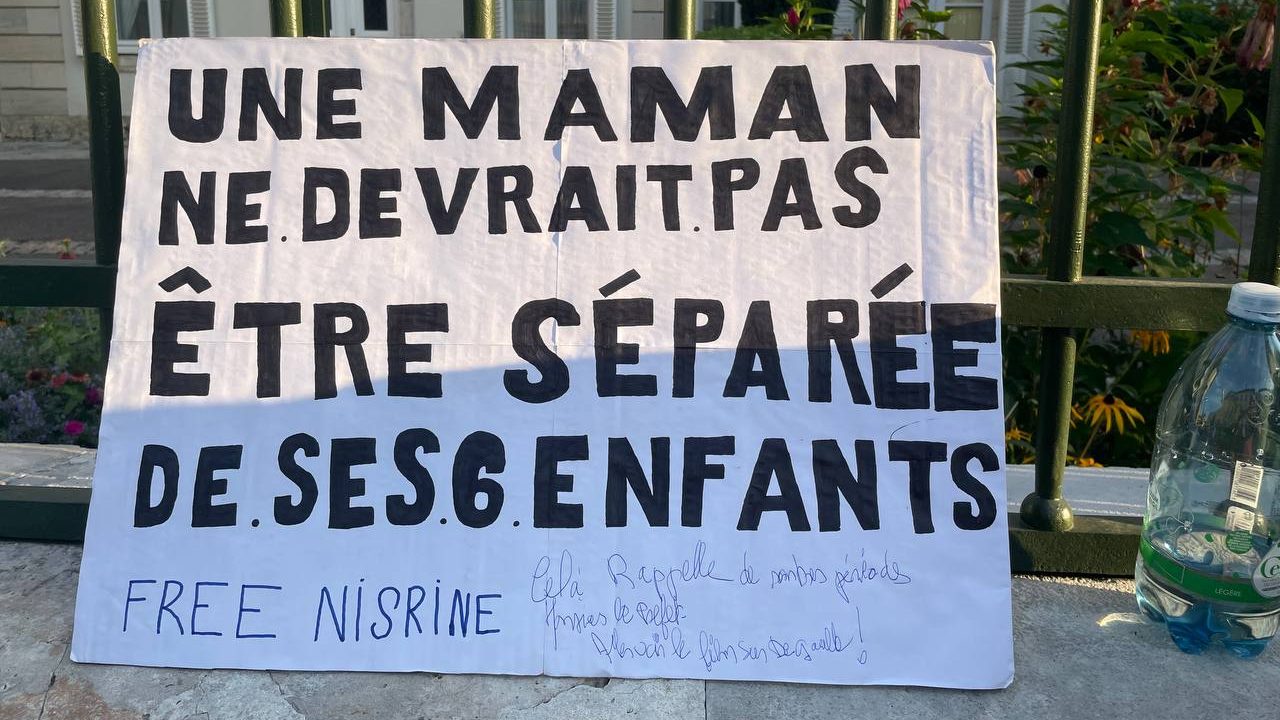 UNE MAMAN
NE.DEVRAIT.PAS
ÊTRE SÉPARÉE
DE.SES.6.ENFANTS
FREE NISRINE
Celà Rappelle de sombres périodes
le
le film sur de gaulle!
LÉGÈRE